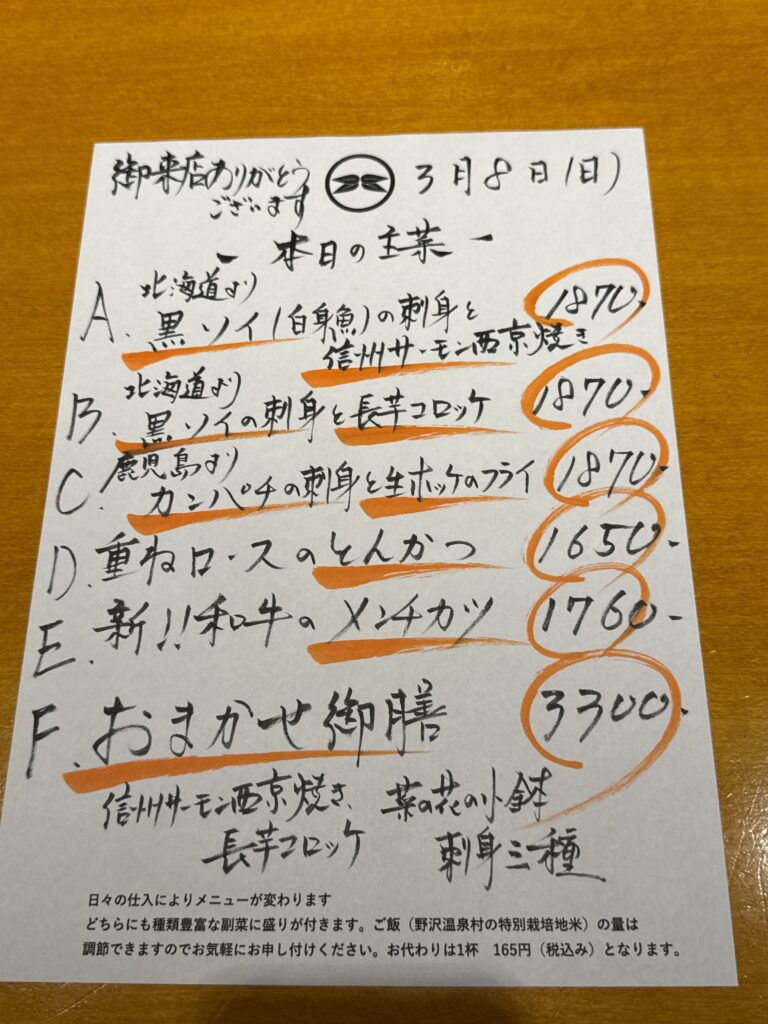 御来店ありがとう
ございます
3月8日(日)
- 本日の主菜 -
A. 北海道より
黒ソイ(白身魚)の刺身と
信州サーモン西京焼き
1870-
B. 北海道より
黒ソイの刺身と長芋コロッケ
1870-
C. 鹿児島より
カンパチの刺身と生ホッケのフライ
1870-
D. 重ねロースのとんかつ
1650-
E. 新!!和牛のメンチカツ
1760-
F. おまかせ御膳
3300-
信州サーモン西京焼き、菜の花の小鉢
長芋コロッケ 刺身三種
日々の仕入によりメニューが変わります
どちらにも種類豊富な副菜に盛りが付きます。ご飯(野沢温泉村の特別栽培地米)の量は
調節できますのでお気軽にお申し付けください。お代わりは1杯 165円(税込み)となります。